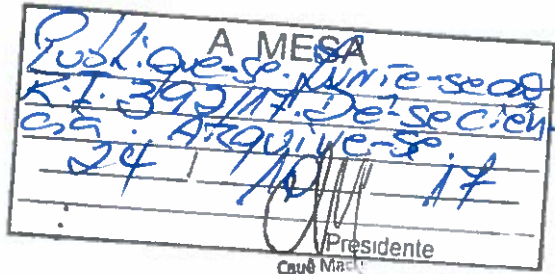 A MESA
Publique-se. Junte-se ao
R.I. 392/17. Dê-se ciên-
cia. Arquive-se.
24 / 10 / 17
Presidente
Cauê Mac